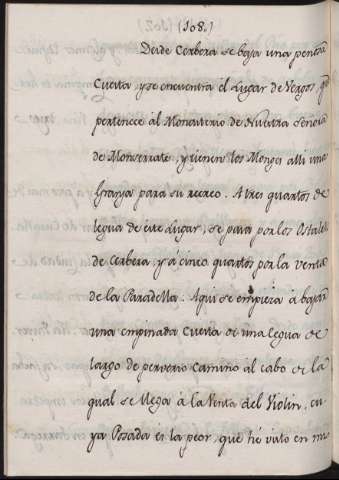 (108.)
Desde Cerbera se baja una penosa
Cuesta, y se encuentra el Lugar de Vergós, qe
pertenece al Monasterio de Nuestra Señora
de Monserrate, y tienen los Monges alli una
Granja para su recreo. A tres quartos de
legua de este Lugar, se pasa por los Ostalets
de Cerbera, y á cinco quartos por la venta
de la Panadella. Aqui se empieza á bajar
una empinada Cuesta de una legua de
largo de perverso camino al cabo de la
qual se llega à la Venta del Violin, cu
ya Posada es la peor, que hé visto en mi